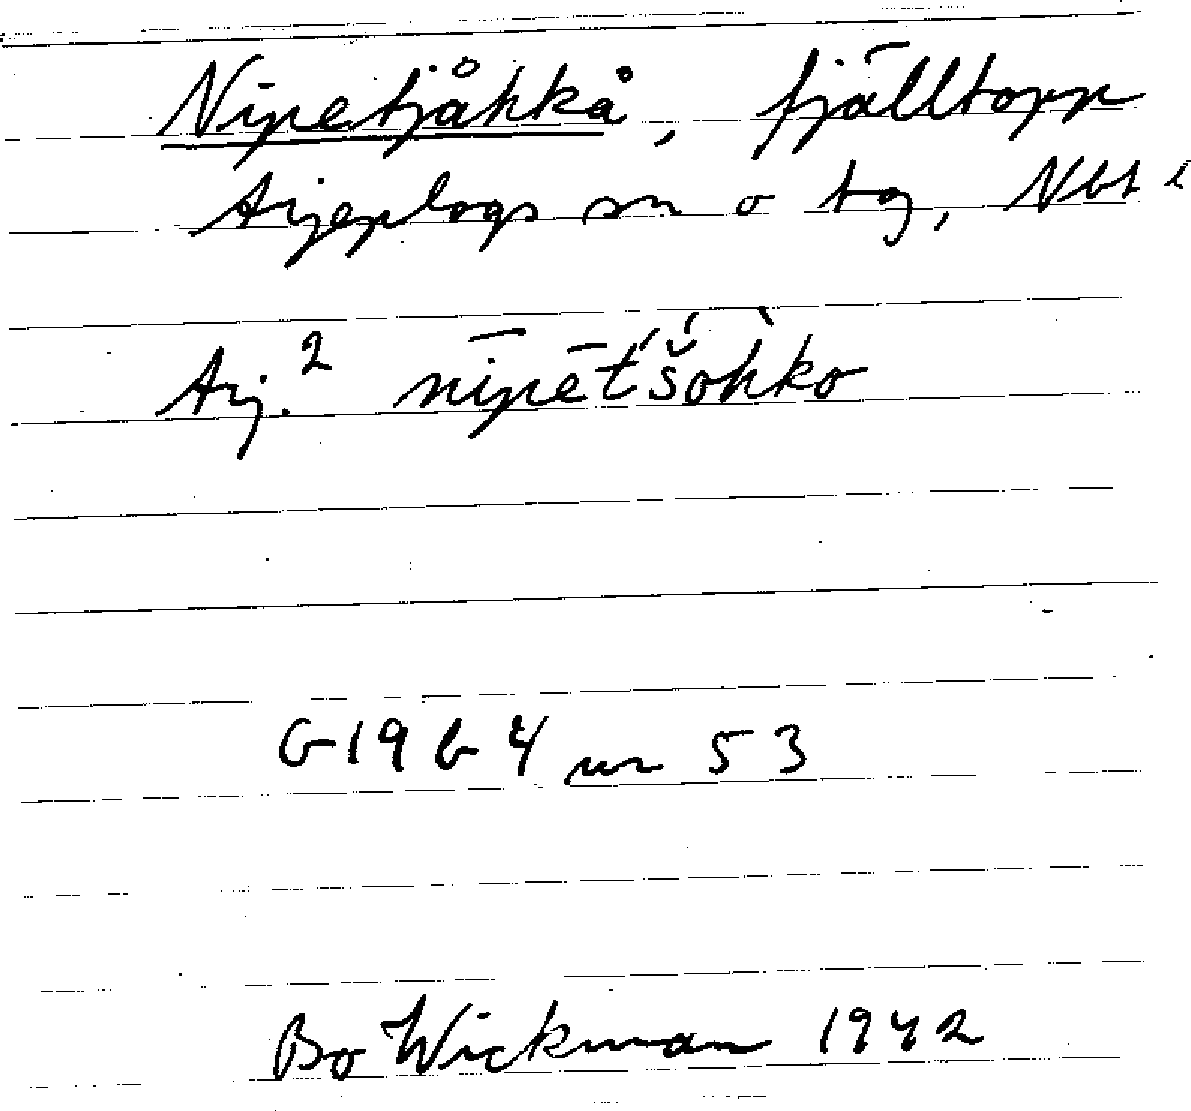 Nipetjåhkå, fjälltopp
Arjeplogs sn o tg, Nbt l
Arj.² nīpēt́šóhkò
G19 b 4 nr 53
Bo Wickman 1942